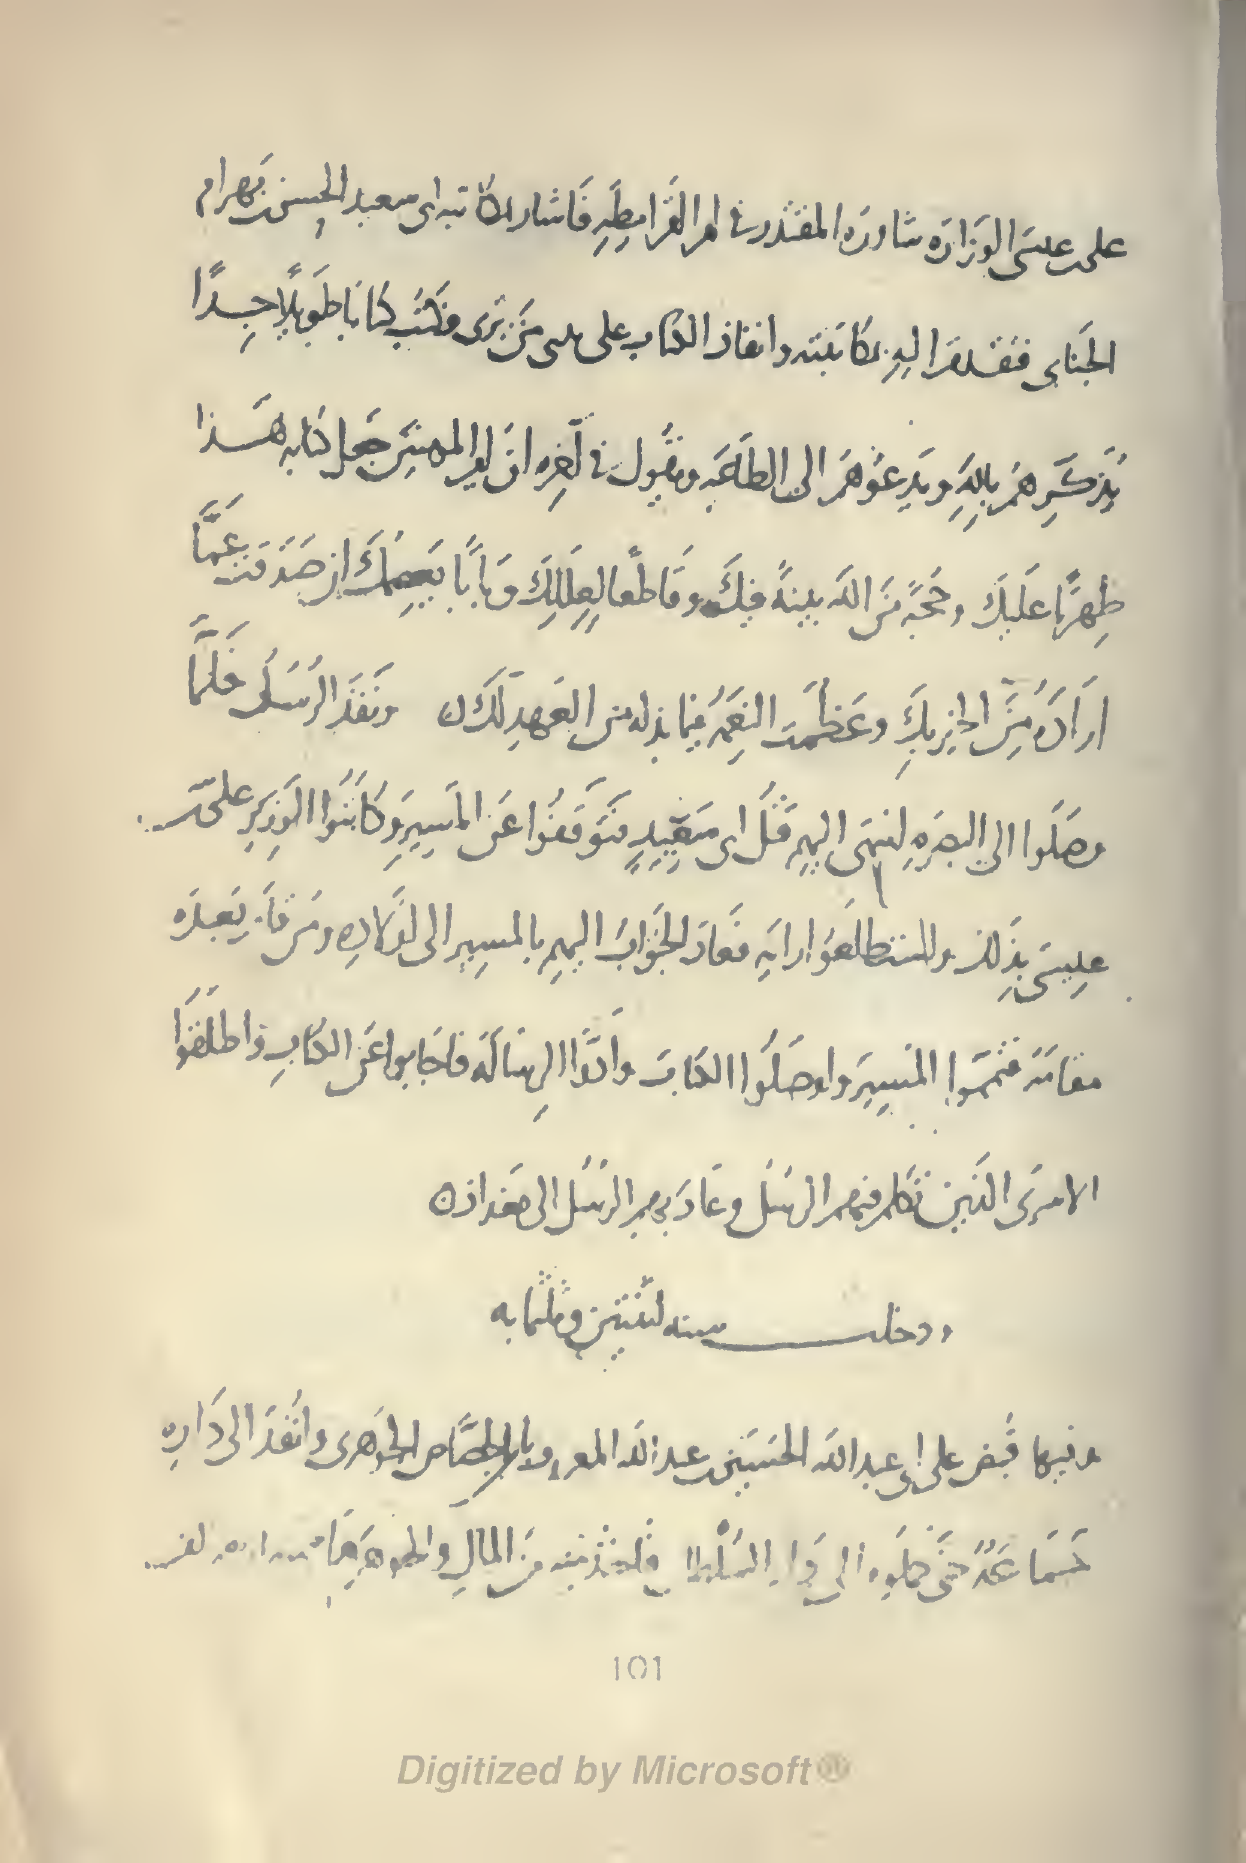 على بن عيسى الوزاره شاوره المقتدر في امر القرامطه فاشار بمكاتبه ابى سعيد الحسن بن بهرام
الجنابي فتقدم اليه بمكاتبته وانفاذ الكتاب على يدى من يرى فكتب كتابا طويلا جدا
يذكرهم بالله ويدعوهم الى الطاعه ويقول في آخره ان امير المومنين جعل كتابه هذا
ظهريا عليك وحجه من الله بينة فيك وقاطعا لعللك وبابا يعصمك ان صدقت عما
اراده من الخير بك وعظمت النعمه فيما بذله من العهد لك ن ونفذ الرسل فلما
وصلوا الى البصره انتهى اليهم قتل ابى سعيد فتوقفوا عن المسير وكاتبوا الوزير على بن
عيسى بذلك واستطلعوا رايه فعاد الجواب اليهم بالمسير الى اولاده ومن قام بعده
مقامه فتمموا المسير واوصلوا الكتاب وادوا الرساله فاجابوا عن الكتاب واطلقوا
الاسرى الذين تكلم فيهم الرسل وعاد بهم الرسل الى بغداد ن
ودخلت سنه اثنتين وثلثمايه
وفيها قبض على ابى عبد الله الحسين بن عبد الله المعروف بابن الجصاص الجوهرى وانفذ الى داره
جماعة حتى حملوه الى دار السلطان فاخذ منه من المال والجوهر ما
101
Digitized by Microsoft®